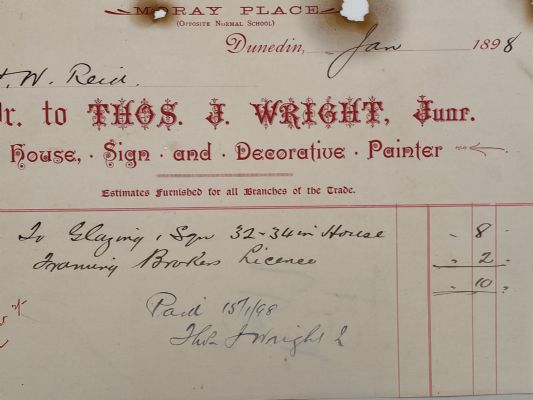 MORAY PLACE
(OPPOSITE NORMAL SCHOOL)
Dunedin, Jan 1898
W. Reid.
Dr. to THOS. J. WRIGHT, Junr.
House, · Sign · and · Decorative · Painter
Estimates Furnished for all Branches of the Trade.
To Glazing 1 Sqr 32-34 in House " 8 "
Framing Brokers Licence " 2 "
" 10 "
Paid 15/1/98
Thos J Wright J